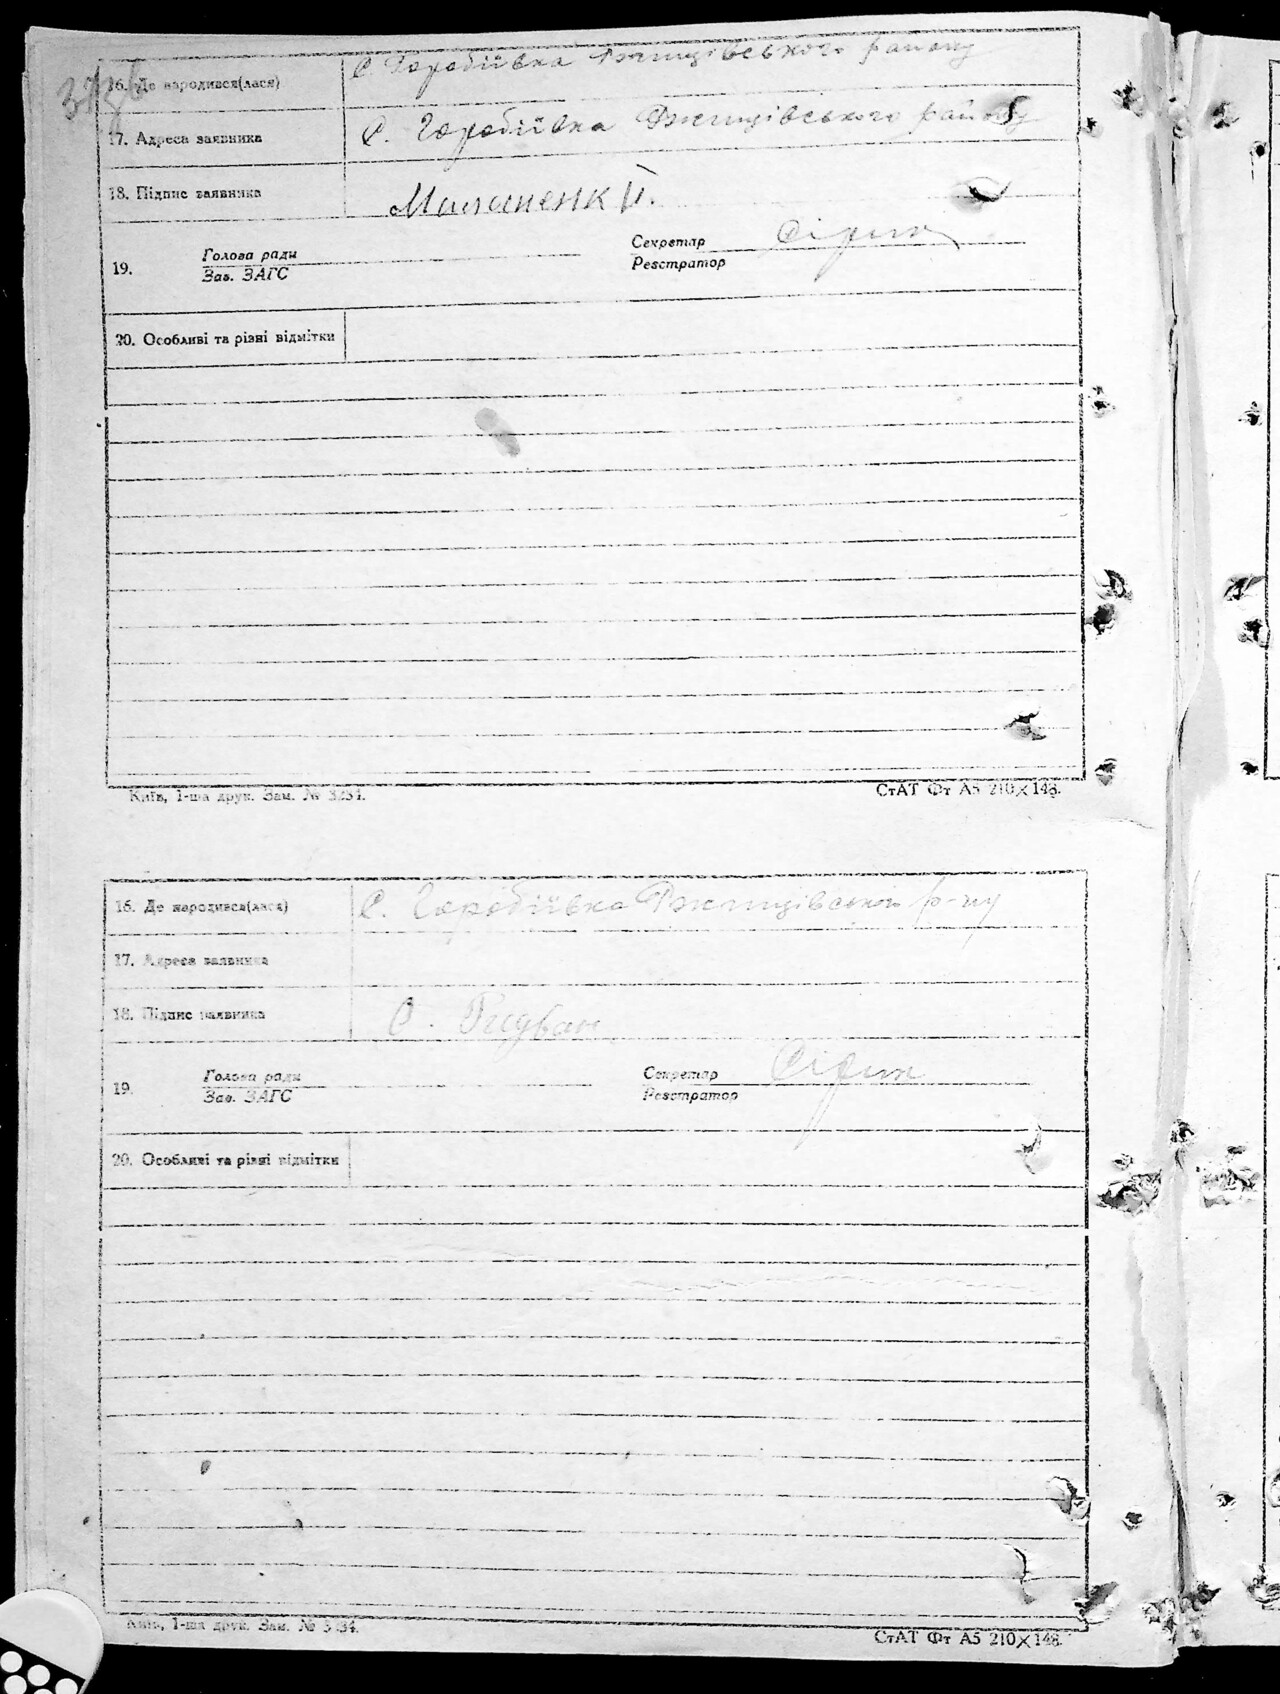 16. Де народився(лася) С. Горобіївка Ржищівського району
17. Адреса заявника С. Горобіївка Ржищівського району
18. Підпис заявника
19. Голова ради Секретар Сірик
Зав. ЗАГС Реєстратор
20. Особливі та різні відмітки
Київ, 1-ша друк. Зам. № 3234. СтАТ Фт А5 210×148.
16. Де народився(лася) С. Горобіївка Ржищівського р-ну
17. Адреса заявника
18. Підпис заявника С.
19. Голова ради Секретар Сірик
Зав. ЗАГС Реєстратор
20. Особливі та різні відмітки
Київ, 1-ша друк. Зам. № 3234. СтАТ Фт А5 210×148.